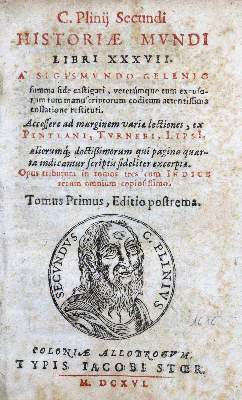 C. Plinij Secundi
HISTORIÆ MVNDI
LIBRI XXXVII.
A SIGISMVNDO GELENIO
summa fide castigati, veterúmque tum excusorum
tum manuscriptorum codicum attentissima
collatione restituti.
Accessere ad marginem variæ lectiones, ex
PINTIANI, TVRNEBI, LIPSI,
aliorumq́; doctissimorum qui pagina quarta
indicantur scriptis fideliter excerptæ.
Opus tributum in tomos tres cum INDICE
rerum omnium copiosissimo.
Tomus Primus, Editio postrema.
SECUNDVS C. PLINIVS
1616
COLONIÆ ALLOBROGVM.
TYPIS IACOBI STŒR.
M. DCXVI.